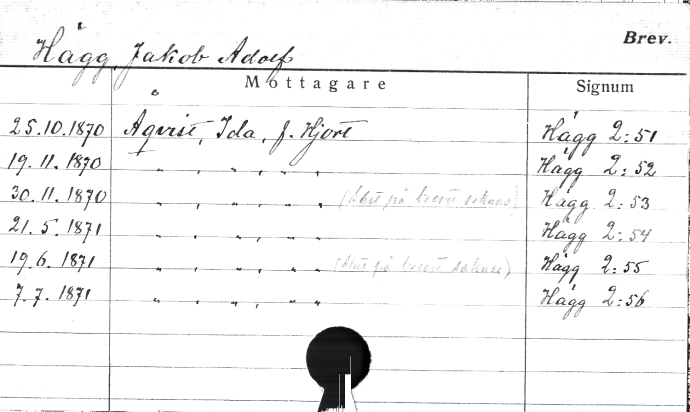 Brev.
Hägg, Jakob Adolf
Mottagare Signum
25.10.1870 Åqvist, Ida, f. Hjort Hägg 2:51
19.11.1870 " , " , " " Hägg 2:52
30.11.1870 " , " , " " (slut på brevet saknas) Hägg 2:53
21.5.1871 " , " , " " Hägg 2:54
19.6.1871 " , " , " " (slut på brevet saknas) Hägg 2:55
7.7.1871 " , " , " " Hägg 2:56